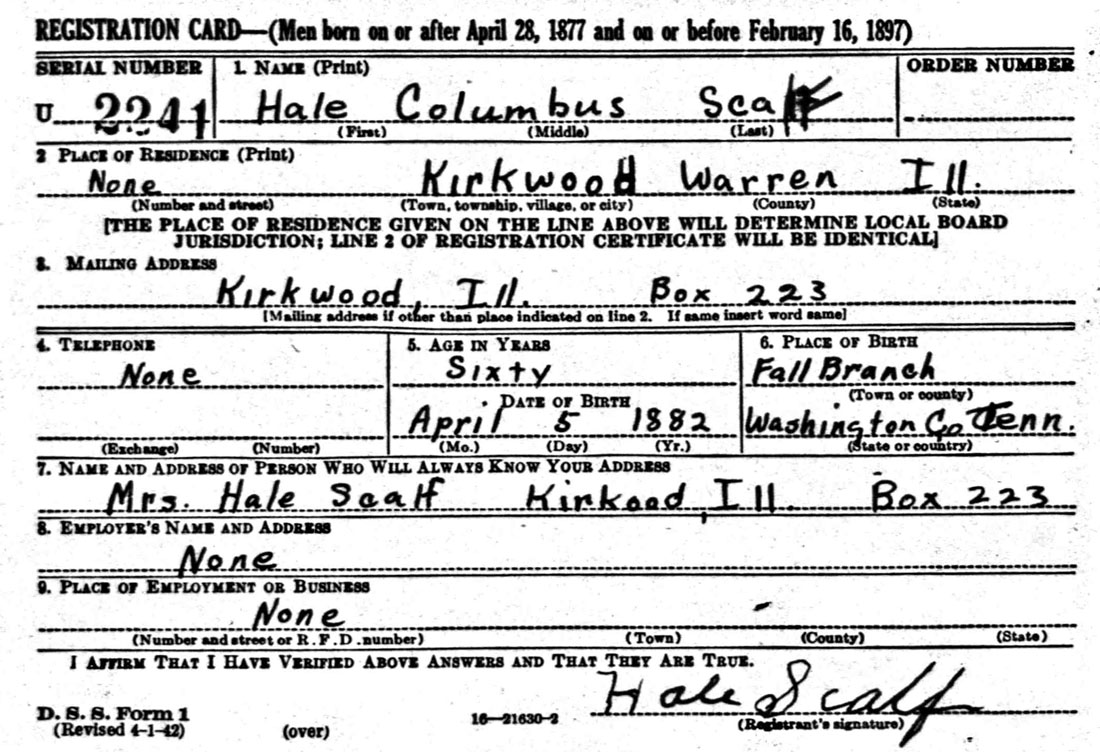 REGISTRATION CARD—(Men born on or after April 28, 1877 and on or before February 16, 1897)
SERIAL NUMBER 1. NAME (Print) ORDER NUMBER
U 2241 Hale Columbus Scalf
(First) (Middle) (Last)
2 PLACE OF RESIDENCE (Print)
None Kirkwood Warren Ill.
(Number and street) (Town, township, village, or city) (County) (State)
[THE PLACE OF RESIDENCE GIVEN ON THE LINE ABOVE WILL DETERMINE LOCAL BOARD
JURISDICTION; LINE 2 OF REGISTRATION CERTIFICATE WILL BE IDENTICAL]
3. MAILING ADDRESS
Kirkwood, Ill. Box 223
[Mailing address if other than place indicated on line 2. If same insert word same]
4. TELEPHONE 5. AGE IN YEARS 6. PLACE OF BIRTH
None Sixty Fall Branch
DATE OF BIRTH (Town or county)
April 5 1882 Washington Co. Tenn.
(Exchange) (Number) (Mo.) (Day) (Yr.) (State or country)
7. NAME AND ADDRESS OF PERSON WHO WILL ALWAYS KNOW YOUR ADDRESS
Mrs. Hale Scalf Kirkood, Ill. Box 223
8. EMPLOYER'S NAME AND ADDRESS
None
9. PLACE OF EMPLOYMENT OR BUSINESS
None
(Number and street or R. F. D. number) (Town) (County) (State)
I AFFIRM THAT I HAVE VERIFIED ABOVE ANSWERS AND THAT THEY ARE TRUE.
Hale Scalf
D. S. S. Form 1
(Revised 4-1-42) (over) 16—21630-2 (Registrant's signature)